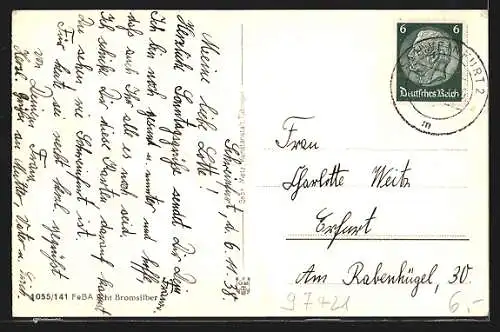 Schweinfurt, d. 6.11.38.
Meine liebe Lotte!
Herzlich Sonntagsgrüße sendet Dir Dein Franz.
Ich bin noch gesund u. munter und hoffe
daß auch Ihr alle es noch seid.
Ich schicke Dir diese Karten, darauf kannst
Du sehen wie Schweinfurt ist.
Für heut sei recht herzl. gegrüßt
von Deinem Franz.
Herzl. Grüße an Mutter, Vater u.
1055/141 FeBA Echt Bromsilber
6 6
Deutsches Reich
SCHWEINFURT 2
m
Frau
Charlotte Weitz
Erfurt
Am Rabenhügel, 30
97421
6,-